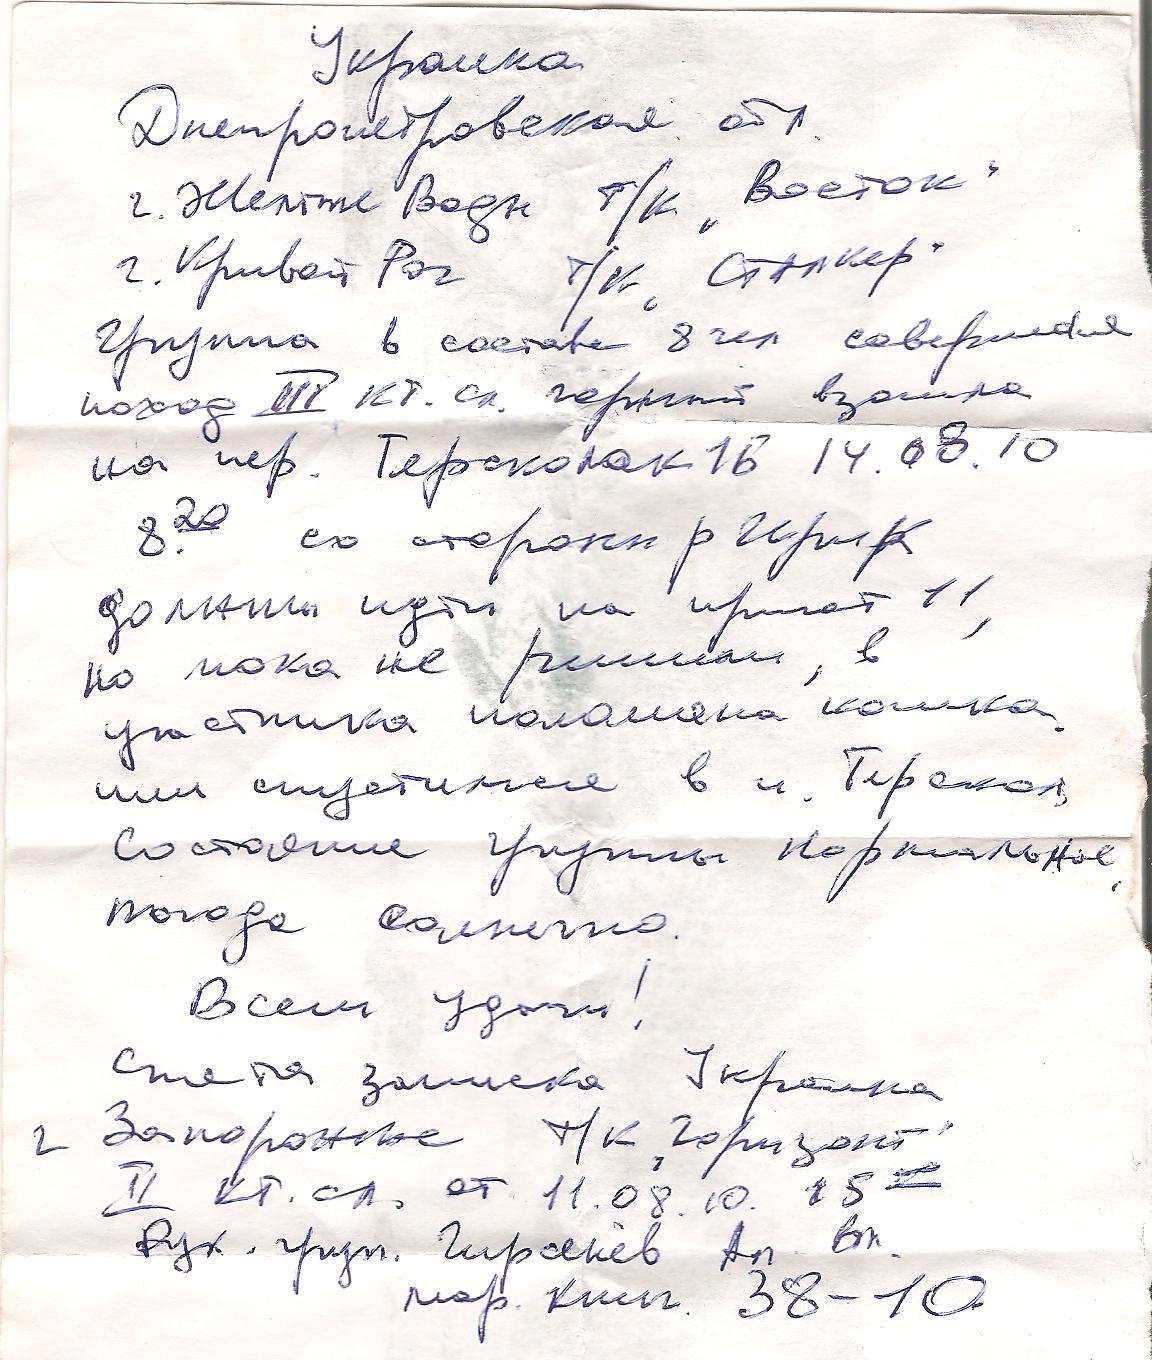 Украина
Днепропетровская обл.
г. Желтые Воды т/к "Восток"
г. Кривой Рог т/к "Сталкер"
Группа в составе 8 чел совершая
поход III кт. сл. горный взошла
на пер. Терсколак 1Б 14.08.10
8.20 со стороны р Ирик
должны идти на приют 11,
но пока не решили, в
участника поломана кошка.
или спустимся в п. Терскол,
Состояние группы нормальное,
погода солнечно.
Всем удачи!
Снята записка Украина
г Запорожье т/к "Горизонт"
II кт. сл. от 11.08.10. 15 00
Рук. груп. Ал. Вл.
мар. книж. 38-10